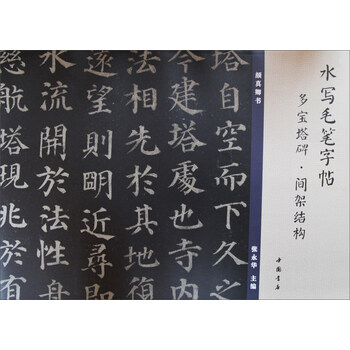 水写毛笔字帖
多宝塔碑·间架结构
中国书店
颜真卿书
张永华 主编
塔自空而下久之
今建塔處也寺
法相先於其地
遠望則眀近尋即
水流開於法性舟
慈航塔現兆於有